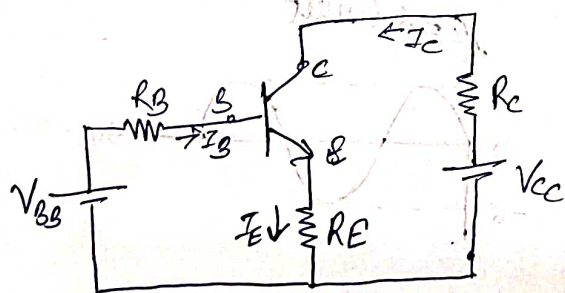 ← IC
C
RC
RB
B
→ IB
E
VBB
VCC
IE ↓
RE